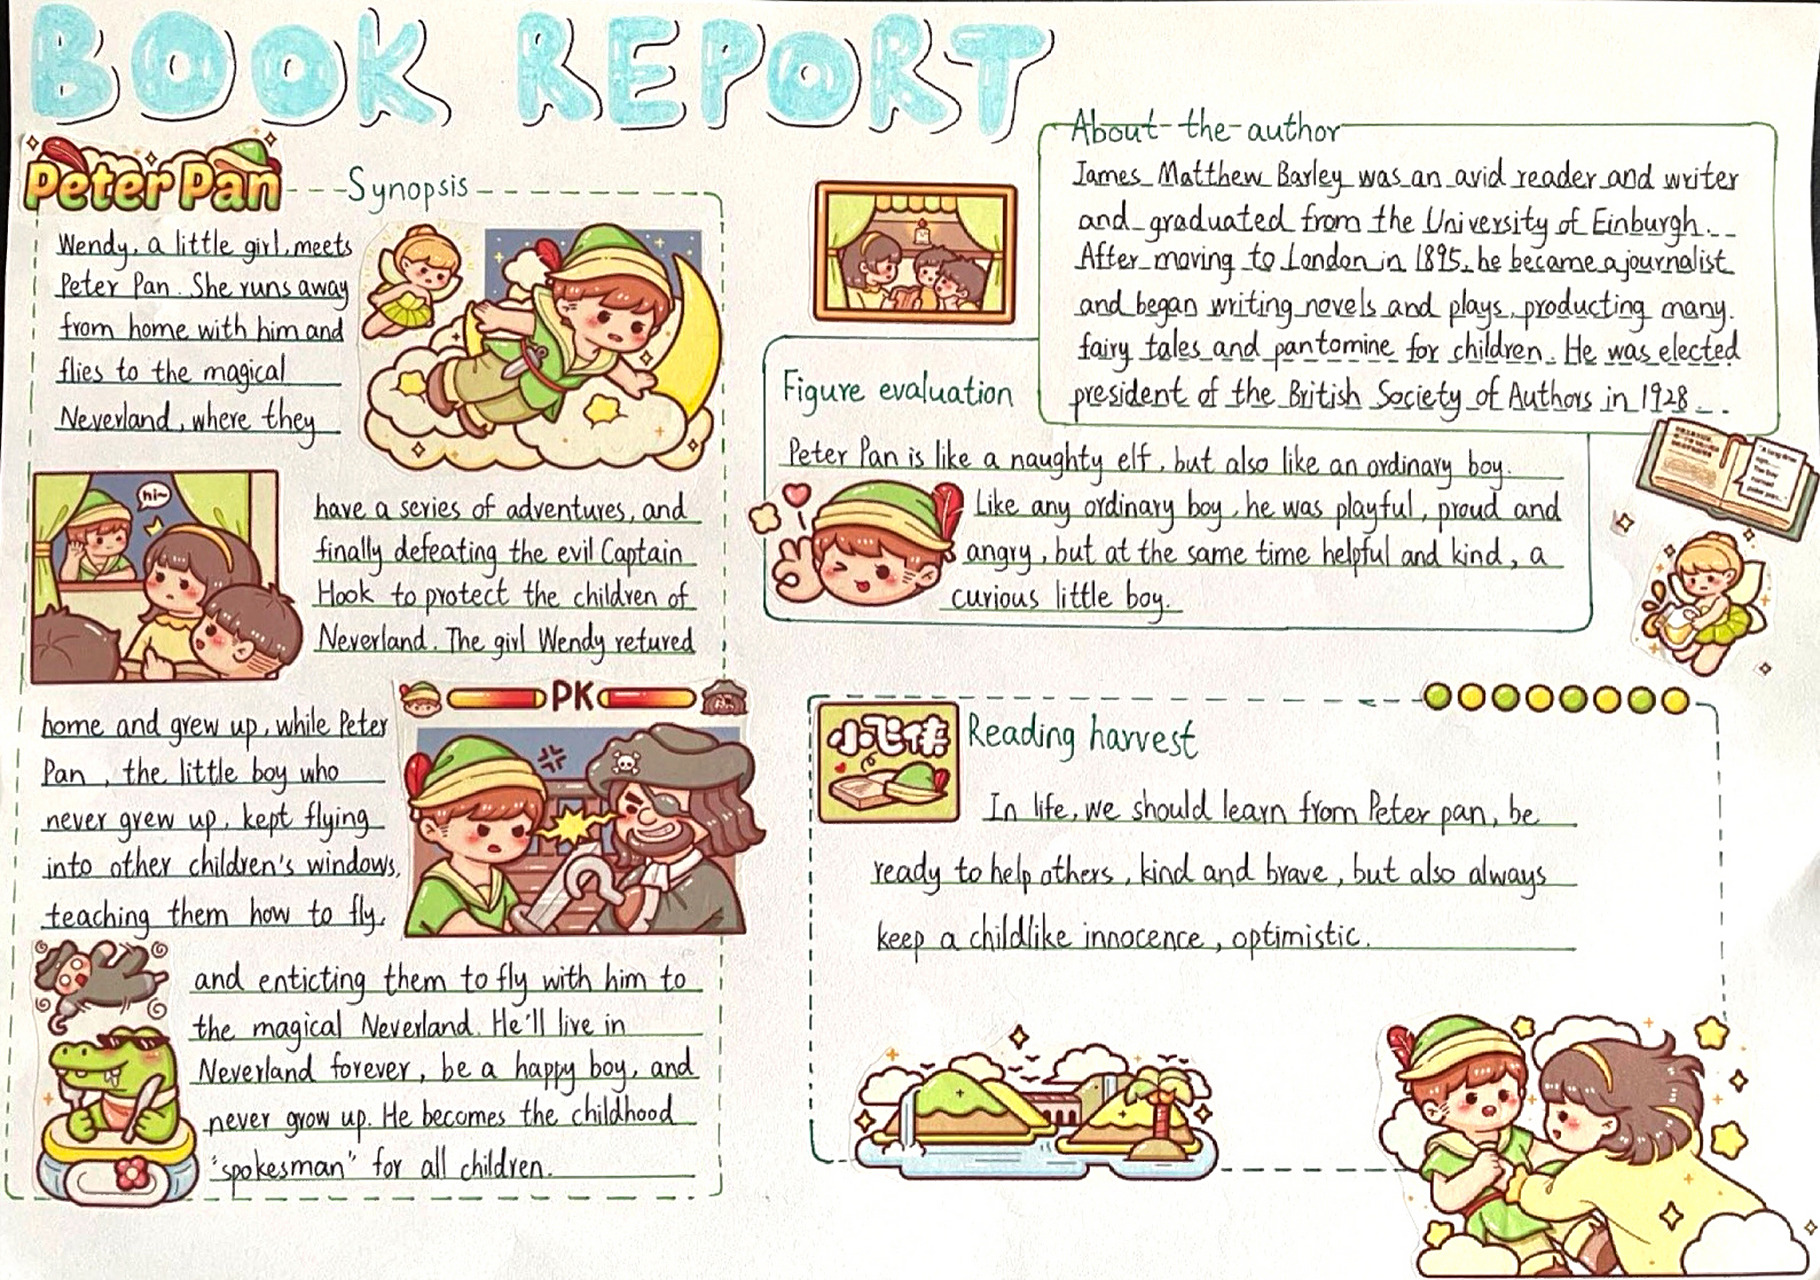 BOOK REPORT
Peter Pan
Synopsis
Wendy, a little girl, meets
Peter Pan. She runs away
from home with him and
flies to the magical
Neverland, where they
hi~
have a series of adventures, and
finally defeating the evil Captain
Hook to protect the children of
Neverland. The girl Wendy retured
PK
home and grew up, while Peter
Pan, the little boy who
never grew up, kept flying
into other children's windows,
teaching them how to fly,
and enticting them to fly with him to
the magical Neverland. He'll live in
Neverland forever, be a happy boy, and
never grow up. He becomes the childhood
"spokesman" for all children.
About the author
James Matthew Barley was an avid reader and writer
and graduated from the University of Einburgh.
After moving to London in 1895, he became a journalist
and began writing novels and plays, producting many
fairy tales and pantomine for children. He was elected
president of the British Society of Authors in 1928
Figure evaluation
Peter Pan is like a naughty elf, but also like an ordinary boy.
Like any ordinary boy, he was playful, proud and
angry, but at the same time helpful and kind, a
curious little boy.
小飞侠
Reading harvest
In life, we should learn from Peter pan, be
ready to help others, kind and brave, but also always
keep a childlike innocence, optimistic.